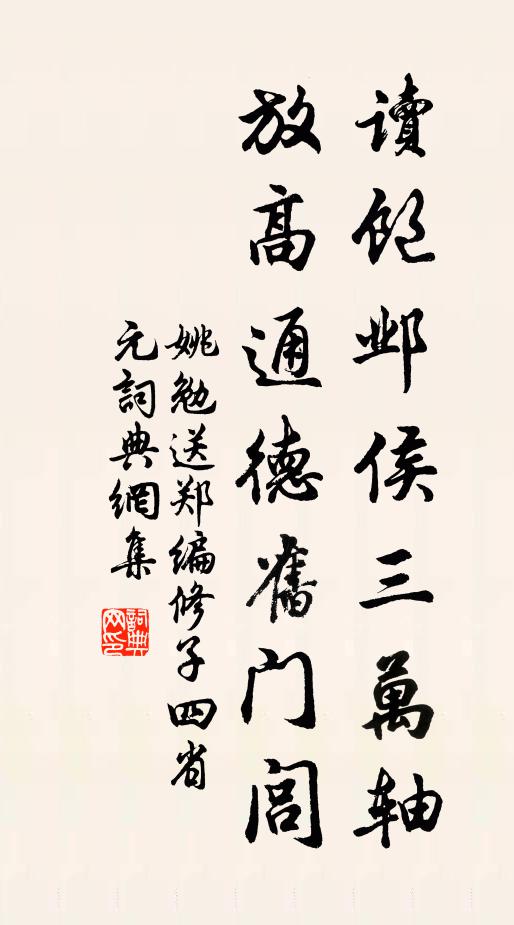 讀飽邺侯三萬軸
放高通德舊门閭
姚勉送郑编修子四省
元詞典網集
詞典网印